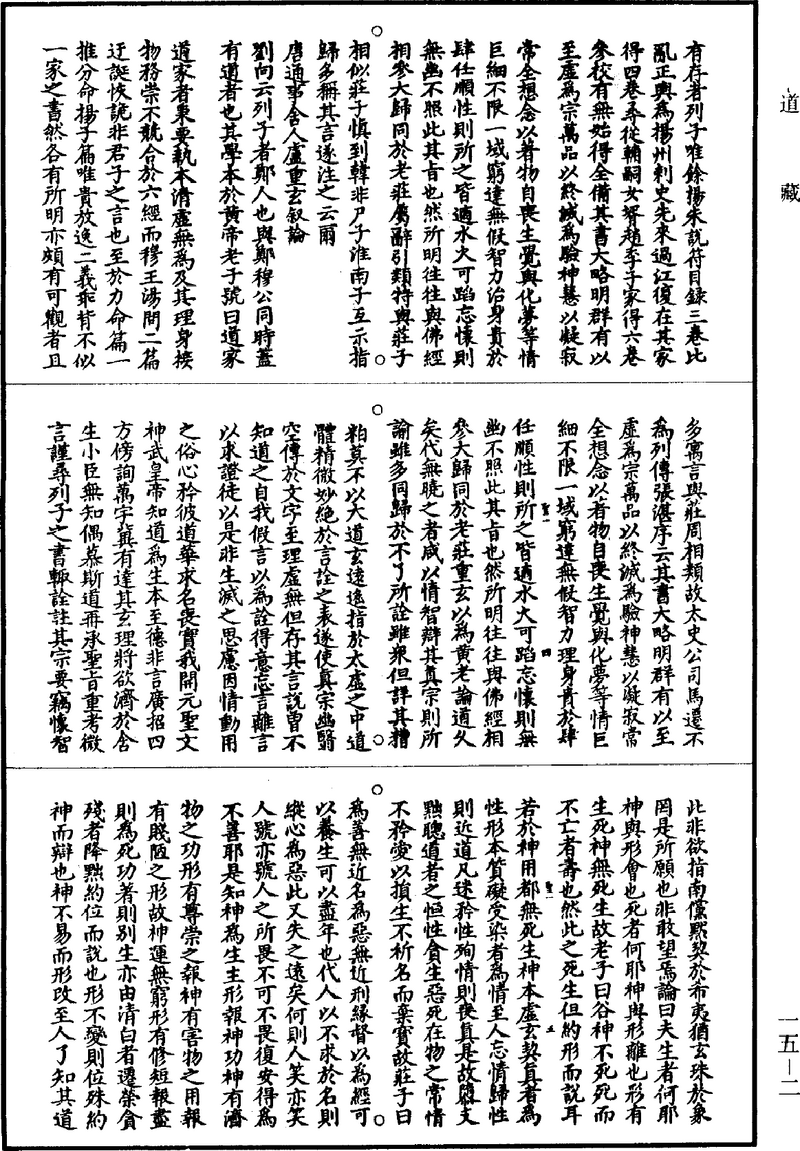 道藏
有存者列子唯餘揚朱說符目錄三卷比
亂正輿為揚州刺史先來過江復在其家
得四卷尋從輔嗣女婿趙季子家得六卷
參校有無始得全備其書大略明群有以
至虛為宗萬品以終滅為驗神慧以凝寂
常全想念以著物自喪生覺與化夢等情
巨細不限一域窮達無假智力治身貴於
肆任順性則所之皆適水火可蹈忘懷則
無幽不照此其旨也然所明往往與佛經
相參大歸同於老莊屬辭引類特與莊子
相似莊子慎到韓非尸子淮南子互示指
歸多稱其言遂注之云爾
唐通事舍人盧重玄叙論
劉向云列子者鄭人也與鄭穆公同時蓋
有道者也其學本於黃帝老子號曰道家
道家者秉要執本清虛無為及其理身接
物務崇不競合於六經而穆王湯問二篇
迂誕恢詭非君子之言也至於力命篇一
推分命揚子篇唯貴放逸二義乖背不似
一家之書然各有所明亦頗有可觀者且
多寓言與莊周相類故太史公司馬遷不
為列傳張湛序云其書大略明群有以至
虛為宗萬品以終滅為驗神慧以凝寂常
全想念以著物自喪生覺與化夢等情巨
細不限一域窮達無假智力理身貴於肆
任順性則所之皆適水火可蹈忘懷則無
幽不照此其旨也然所明往往與佛經相
參大歸同於老莊重玄以為黃老論道久
矣代無曉之者咸以情智辯其真宗則所
論雖多同歸於不了所詮雖衆但詳其糟
粕莫不以大道玄遠遙指於太虛之中道
體精微妙絕於言詮之表遂使真宗幽翳
空傳於文字至理虛無但存其言說曾不
知道之自我假言以為詮得意忘言離言
以求證徒以是非生滅之思慮因情動用
之俗心矜彼道華求名喪實我開元聖文
神武皇帝知道為生本至德非言廣招四
方傍詢萬宇冀有達其玄理將欲濟於含
生小臣無知偶慕斯道再承聖旨重考微
言謹尋列子之書輙詮註其宗要竊懷智
此非欲指南儻默契於希夷猶玄珠於象
罔是所願也非敢望焉論曰夫生者何耶
神與形會也死者何耶神與形離也形有
生死神無死生故老子曰谷神不死死而
不亡者壽也然此之死生但約形而說耳
若於神用都無死生神本虛玄契真者為
性形本質礙受染者為情至人忘情歸性
則近道凡迷矜性殉情則喪真是故隳支
黜聰道者之恒性貪生惡死在物之常情
不矜愛以損生不祈名而棄實故莊子曰
為善無近名為惡無近刑緣督以為經可
以養生可以盡年也代人以不求於名則
縱心為惡此又失之遠矣何則人笑亦笑
人號亦號人之所畏不可不畏復安得為
不善耶是知神為生主形報神功神有濟
物之功形有尊崇之報神有害物之用報
有賤陋之形故神運無窮形有修短報盡
則為死功著則別生亦由清白者遷榮貪
殘者降黜約位而說也形不變則位殊約
神而辯也神不易而形改至人了知其道
一五—二